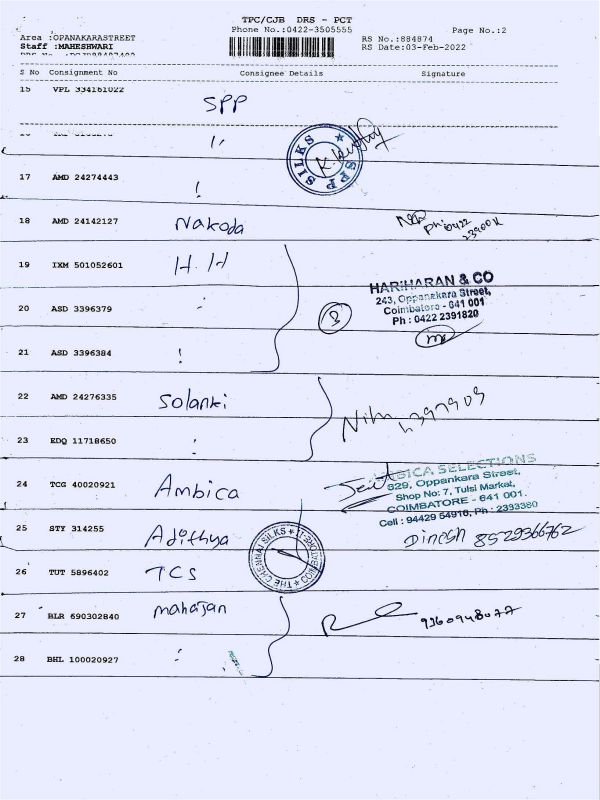 TPC/CJB DRS - PCT
Phone No.:0422-3505555
Page No.:2
Area :OPANAKARASTREET
Staff :MAHESHWARI
RS No.:884874
RS Date:03-Feb-2022
S No Consignment No Consignee Details Signature
15 VPL 334161022 SPP
SPP SILKS
17 AMD 24274443
18 AMD 24142127 Nakoda
19 IXM 501052601 H.H
HARIHARAN & CO
243, Oppanakara Street,
Coimbatore - 641 001
Ph : 0422 2391820
20 ASD 3396379
3
21 ASD 3396384
22 AMD 24276335 Solanki
23 EDQ 11718650
24 TCG 40020921 Ambica
AMBICA SELECTIONS
829, Oppankara Street,
Shop No: 7, Tulsi Market,
COIMBATORE - 641 001.
Cell : 94429 54916, Ph : 2393380
25 STY 314255 Adithya
Dinesh 8529366762
THE CHENNAI SILKS
26 TUT 5896402 TCS
27 BLR 690302840 mahajan
9360948077
28 BHL 100020927